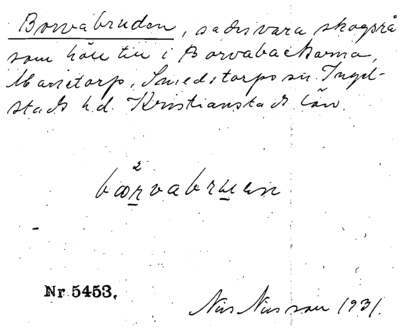 Borvabruden, sades vara skogsrå
som höll till i Borvabackarna,
Marietorp, Smedstorps sn. Ingel-
stads hd. Kristianstads län.
2
bœrvabruen
Nr 5453.
Nils Nilsson 1931.